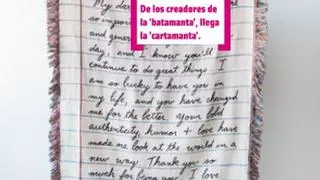 De los creadores de
la 'batamanta', llega
la 'cartamanta'.
so importa
and gener
day, and I know you'll
continue to do great things. I
am so lucky to have you in
my life, and you have changed
me for the better. Your bold
authenticity humor + love have
made me look at the world in a
new way. Thank you so
much for being you! I love